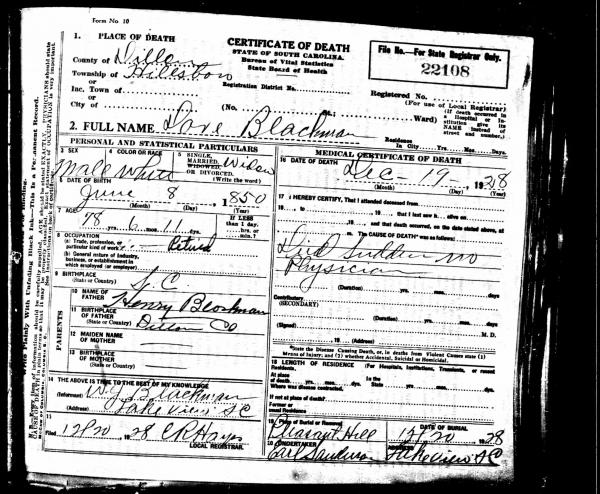 Form No 10
1. PLACE OF DEATH
CERTIFICATE OF DEATH
STATE OF SOUTH CAROLINA.
Bureau of Vital Statistics
State Board of Health
File No.—For State Registrar Only.
22108
County of Dillon
Township of Hillsboro
or
Inc. Town of
or
City of
Registration District No.
Registered No.
(For use of Local Registrar)
(No.
Ward)
(If death occurred in a Hospital or Institution give its NAME instead of street and number.)
2. FULL NAME Dave Blackman
Residence
In City Yrs. Mos. Days
PERSONAL AND STATISTICAL PARTICULARS
3 SEX
4 COLOR OR RACE
5 SINGLE, MARRIED, WIDOWED OR DIVORCED.
(Write the word)
Male White Widow
6 DATE OF BIRTH
June 8 1850
(Month) (Day) (Year)
7 AGE
78 yrs. 6 mos. 11 ds.
IF LESS than 1 day, hrs. or min.?
8 OCCUPATION
(a) Trade, profession, or particular kind of work Retired
(b) General nature of industry, business, or establishment in which employed (or employer)
9 BIRTHPLACE
(State or Country) S. C.
PARENTS
10 NAME OF FATHER Henry Blackman
11 BIRTHPLACE OF FATHER
(State or Country) Dillon Co
12 MAIDEN NAME OF MOTHER
13 BIRTHPLACE OF MOTHER
14 THE ABOVE IS TRUE TO THE BEST OF MY KNOWLEDGE
(Informant) Blackman
(Address) Lakeview SC
15
Filed 12/20 1928 C R Hayes
LOCAL REGISTRAR.
MEDICAL CERTIFICATE OF DEATH
16 DATE OF DEATH Dec - 19 - 1928
(Month) (Day) (Year)
17 I HEREBY CERTIFY, That I attended deceased from
19 to 19
that I last saw h alive on
19 and that death occurred, on the date stated above, at
m. The CAUSE OF DEATH* was as follows:
Died Sudden no
Physician
(Duration) yrs. mos. days
Contributory
(SECONDARY)
(Duration) yrs. mos. days
(Signed) M. D.
19 (Address)
*State the Disease Causing Death, or, in deaths from Violent Causes state (1) Means of Injury; and (2) whether Accidental, Suicidal or Homicidal.
18 LENGTH OF RESIDENCE (For Hospitals, Institutions, Transients, or recent Residents.
At place of death yrs. mos. days In the State yrs. mos. days
Where was disease contracted.
If not at place of death?
Former or usual Residence
19 Place of Burial or Removal
DATE OF BURIAL
Pleasant Hill 12/20 1928
20 UNDERTAKER
Earl Sanderson Lakeview SC